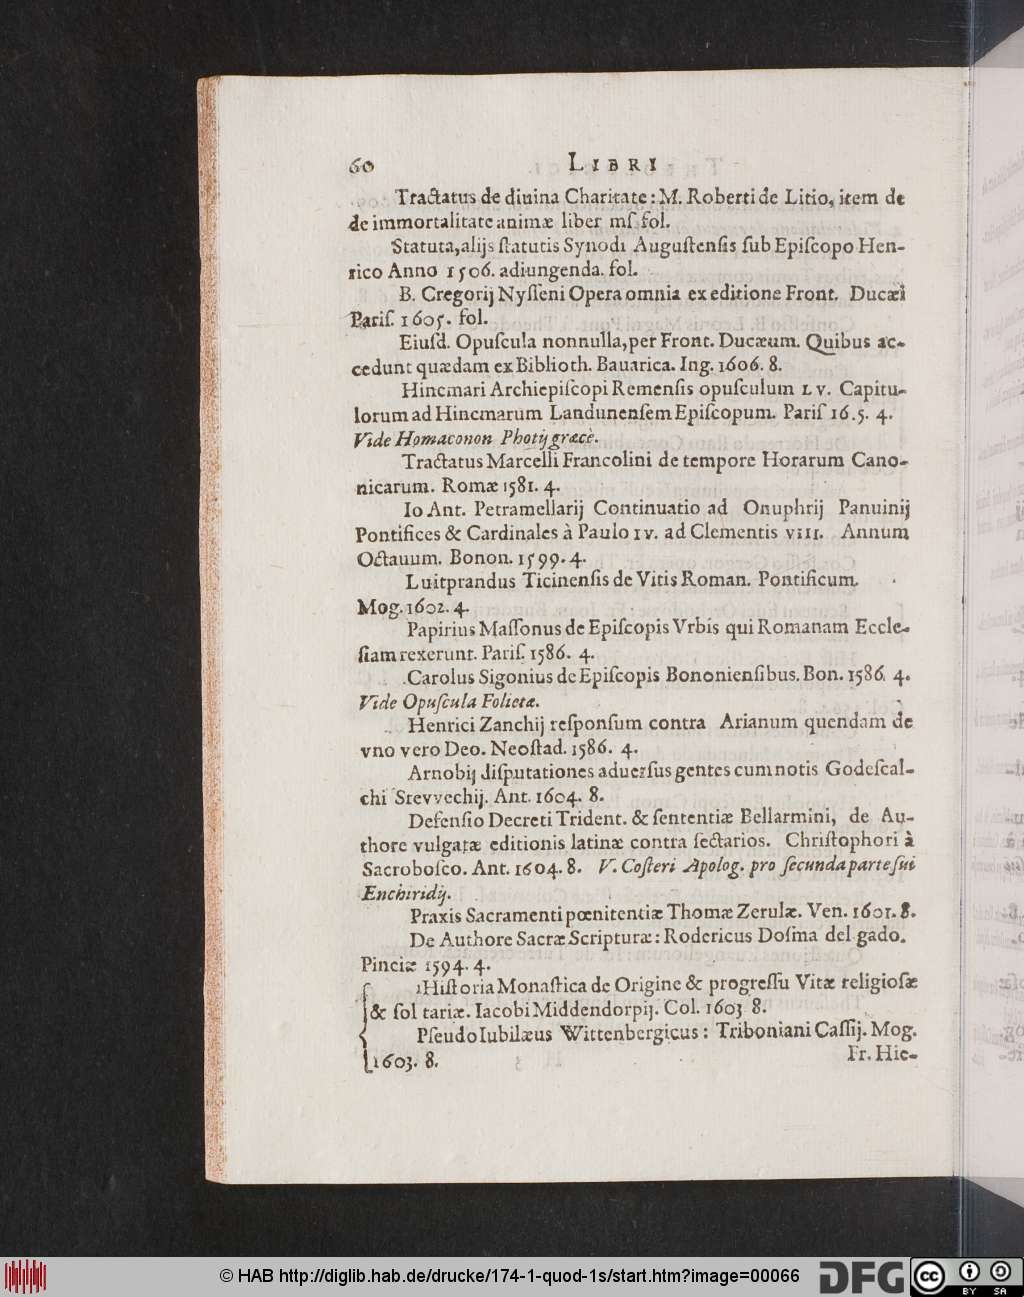 60 LIBRI
Tractatus de diuina Charitate: M. Roberti de Litio, item de
de immortalitate animæ liber mſ. fol.
Statuta, alijs ſtatutis Synodi Auguſtenſis ſub Epiſcopo Hen-
rico Anno 1506. adiungenda. fol.
B. Cregorij Nyſſeni Opera omnia ex editione Front. Ducæi
Pariſ. 1605. fol.
Eiuſd. Opuſcula nonnulla, per Front. Ducæum. Quibus ac-
cedunt quædam ex Biblioth. Bauarica. Ing. 1606. 8.
Hincmari Archiepiſcopi Remenſis opuſculum LV. Capitu-
lorum ad Hincmarum Landunenſem Epiſcopum. Pariſ 16.5. 4.
Vide Homaconon Photij græcè.
Tractatus Marcelli Francolini de tempore Horarum Cano-
nicarum. Romæ 1581. 4.
Io Ant. Petramellarij Continuatio ad Onuphrij Panuinij
Pontifices & Cardinales à Paulo IV. ad Clementis VIII. Annum
Octauum. Bonon. 1599. 4.
Luitprandus Ticinenſis de Vitis Roman. Pontificum.
Mog. 1602. 4.
Papirius Maſſonus de Epiſcopis Vrbis qui Romanam Eccle-
ſiam rexerunt. Pariſ. 1586. 4.
Carolus Sigonius de Epiſcopis Bononienſibus. Bon. 1586. 4.
Vide Opuſcula Folietæ.
Henrici Zanchij reſponſum contra Arianum quendam de
vno vero Deo. Neoſtad. 1586. 4.
Arnobij diſputationes aduerſus gentes cum notis Godeſcal-
chi Stevvechij. Ant. 1604. 8.
Defenſio Decreti Trident. & ſententiæ Bellarmini, de Au-
thore vulgatæ editionis latinæ contra ſectarios. Chriſtophori à
Sacroboſco. Ant. 1604. 8. V. Coſteri Apolog. pro ſecunda parte ſui
Enchiridij.
Praxis Sacramenti pœnitentiæ Thomæ Zerulæ. Ven. 1601. 8.
De Authore Sacræ Scripturæ: Rodericus Doſma del gado.
Pinciæ 1594. 4.
Hiſtoria Monaſtica de Origine & progreſſu Vitæ religioſæ
& ſol tariæ. Iacobi Middendorpij. Col. 1603 8.
Pſeudo Iubilæus Wittenbergicus: Triboniani Caſſij. Mog.
1603. 8. Fr. Hie-
© HAB http://diglib.hab.de/drucke/174-1-quod-1s/start.htm?image=00066 DFG cc BY SA